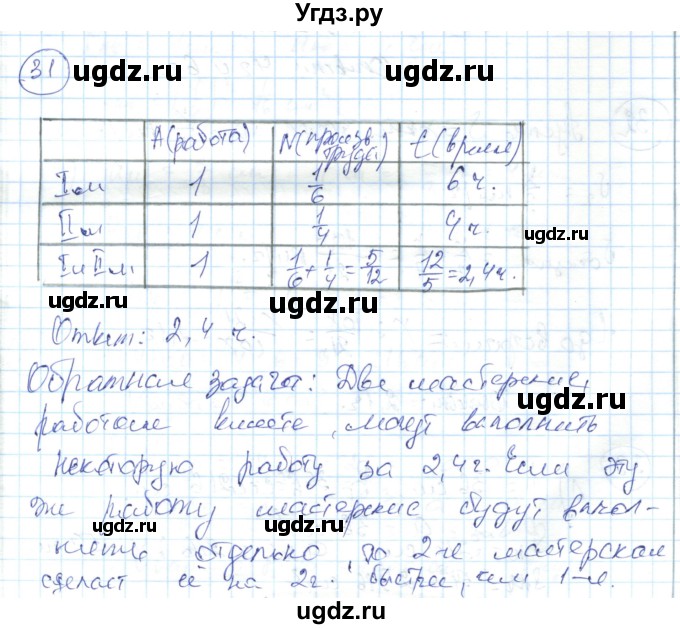 Угдз.ру
31 ugdz.ru ugdz.ru
A(работа) N(произв. труда) t(время)
I м 1 1/6 6 ч.
II м 1 1/4 4 ч.
I и II м 1 1/6 + 1/4 = 5/12 12/5 = 2,4 ч.
ugdz.ru
Ответ: 2,4 ч. ugdz.ru
Обратная задача: Две мастерские,
ugdz.ru
работая вместе, могут выполнить
некоторую работу за 2,4 ч. Если эту
же работу мастерские будут выпол-
ugdz.ru
нять отдельно, то 2-ая мастерская
сделает её на 2ч. быстрее, чем 1-я.
ugdz.ru ugdz.ru